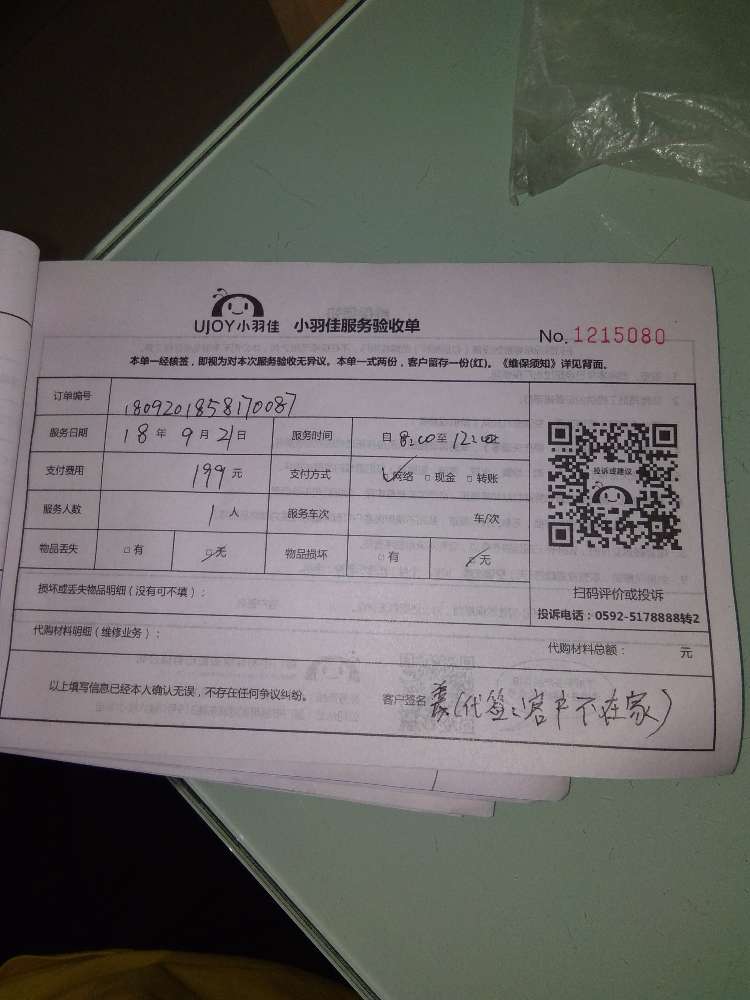 UJOY小羽佳 小羽佳服务验收单
No. 1215080
本单一经核签，即视为对本次服务验收无异议。本单一式两份，客户留存一份(红)。《维保须知》详见背面。
订单编号 1809201858170087
服务日期 18 年 9 月 21 日 服务时间 日 8:00 至 12:00
支付费用 199 元 支付方式 网络 现金 转账
服务人数 1 人 服务车次 车/次
物品丢失 有 无 物品损坏 有 无
投诉或建议
扫码评价或投诉
投诉电话：0592-5178888转2
损坏或丢失物品明细（没有可不填）：
代购材料明细（维修业务）： 代购材料总额： 元
以上填写信息已经本人确认无误，不存在任何争议纠纷。 客户签名 (代签：客户不在家)